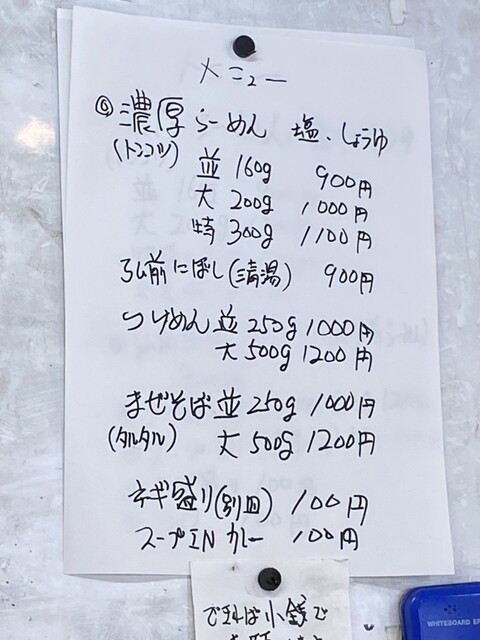 メニュー
◎濃厚らーめん 塩、しょうゆ
(トンコツ)
並 160g 900円
大 200g 1000円
特 300g 1100円
弘前にぼし(清湯) 900円
つけめん 並 250g 1000円
大 500g 1200円
まぜそば 並 250g 1000円
(タルタル) 大 500g 1200円
ネギ盛り(別皿) 100円
スープIN カレー 100円
できれば小銭で
WHITEBOARD